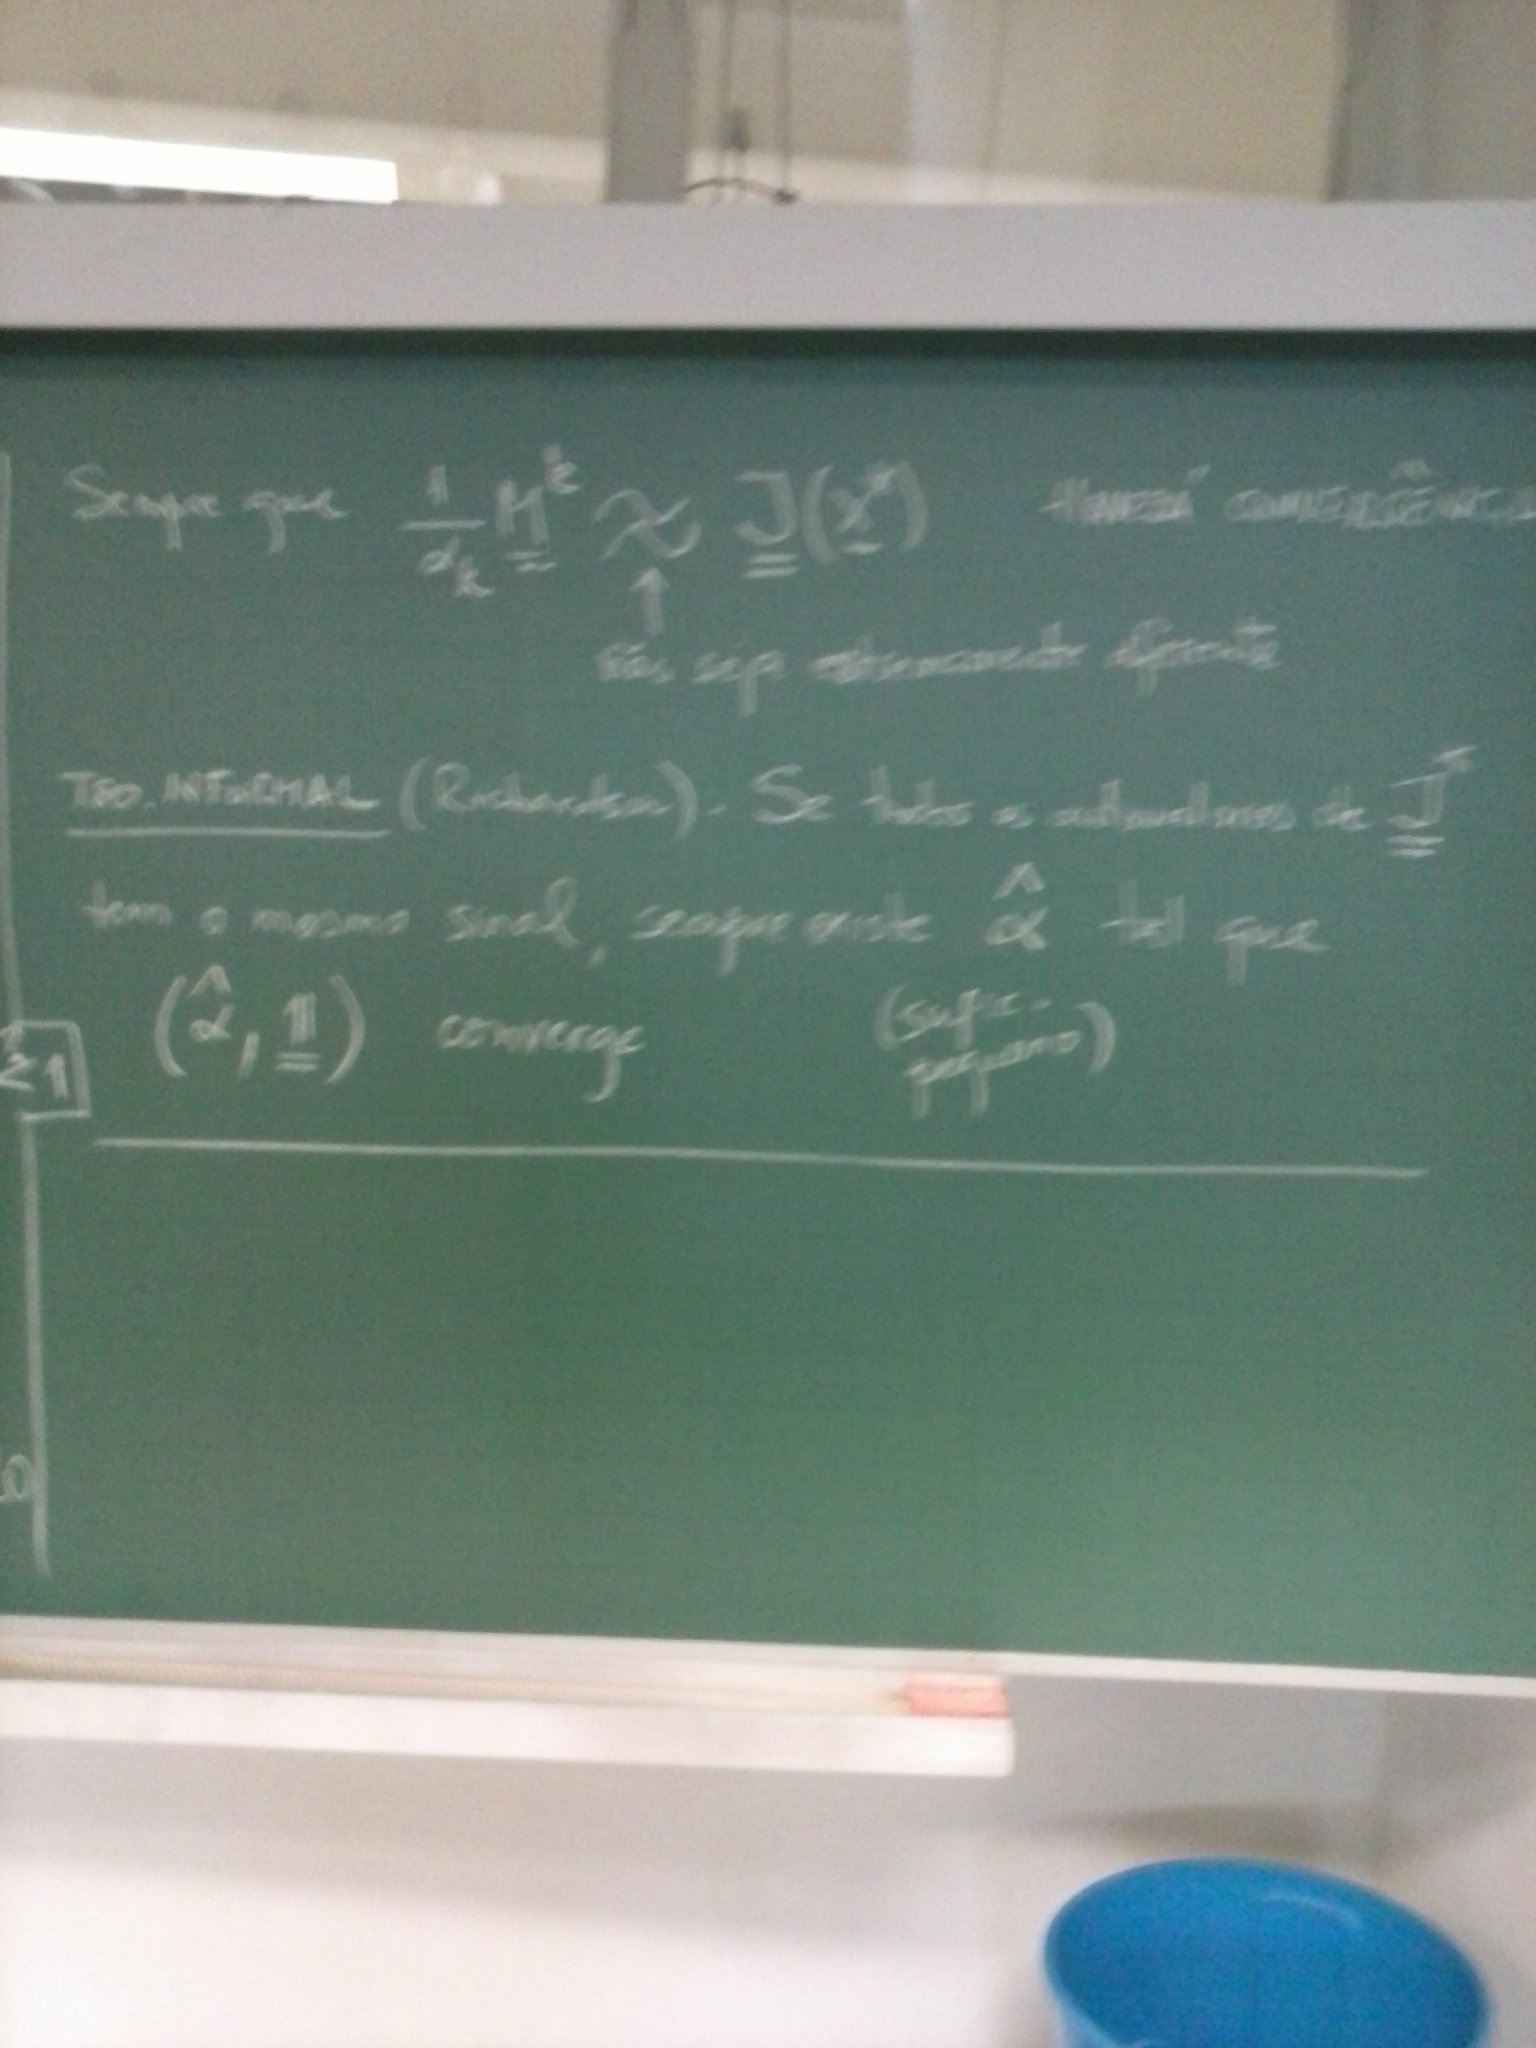 Sempre que 1/αₖ M^k ≈ J(x*) HAVERÁ CONVERGÊNCIA
↑
não seja extremamente diferente
TEO. INFORMAL (Richardson). Se todos os autovalores de J*
tem o mesmo sinal, sempre existe α̂ tal que
(α̂, 1) converge (sufic.
pequeno)